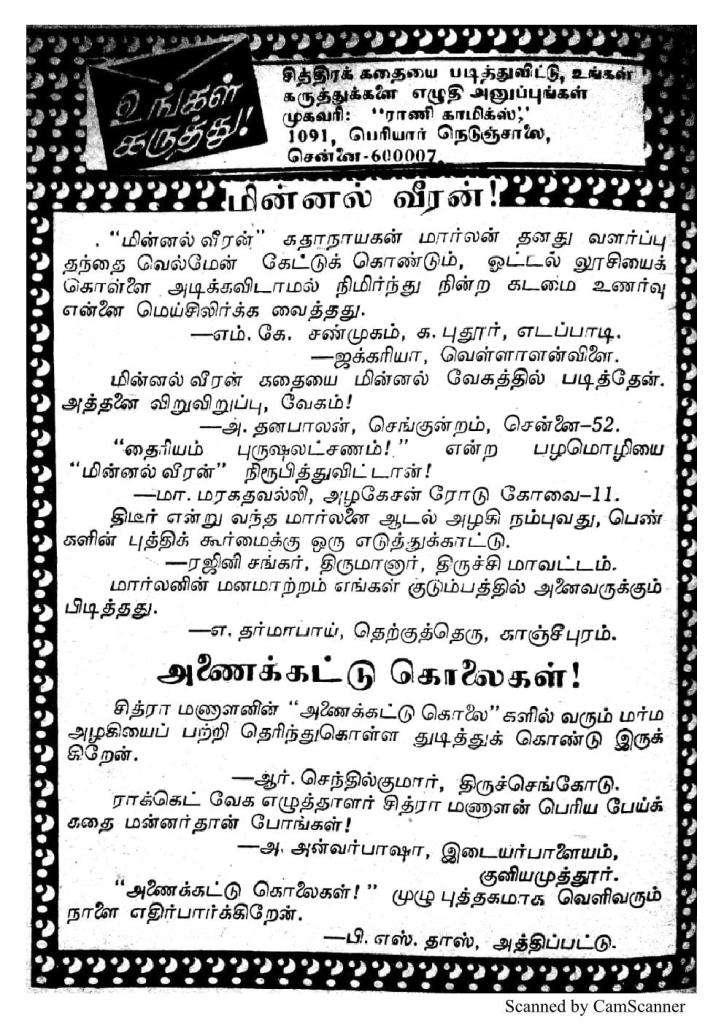 உங்கள்
கருத்து!
சித்திரக் கதையை படித்துவிட்டு, உங்கள்
கருத்துக்களை எழுதி அனுப்புங்கள்
முகவரி: "ராணி காமிக்ஸ்,"
1091, பெரியார் நெடுஞ்சாலை,
சென்னை-600007.
மின்னல் வீரன்!
"மின்னல் வீரன்" கதாநாயகன் மார்லன் தனது வளர்ப்பு
தந்தை வெல்மேன் கேட்டுக் கொண்டும், ஓட்டல் லூசியைக்
கொள்ளை அடிக்கவிடாமல் நிமிர்ந்து நின்ற கடமை உணர்வு
என்னை மெய்சிலிர்க்க வைத்தது.
—எம். கே. சண்முகம், க. புதூர், எடப்பாடி.
—ஐக்கரியா, வெள்ளாளன்விளை.
மின்னல் வீரன் கதையை மின்னல் வேகத்தில் படித்தேன்.
அத்தனை விறுவிறுப்பு, வேகம்!
—அ. தனபாலன், செங்குன்றம், சென்னை—52.
"தைரியம் புருஷலட்சணம்!" என்ற பழமொழியை
"மின்னல் வீரன்" நிரூபித்துவிட்டான்!
—மா. மரகதவல்லி, அழகேசன் ரோடு கோவை—11.
திடீர் என்று வந்த மார்லனை ஆடல் அழகி நம்புவது, பெண்
களின் புத்திக் கூர்மைக்கு ஒரு எடுத்துக்காட்டு.
—ரஜினி சங்கர், திருமானூர், திருச்சி மாவட்டம்.
மார்லனின் மனமாற்றம் எங்கள் குடும்பத்தில் அனைவருக்கும்
பிடித்தது.
—எ. தர்மாபாய், தெற்குத்தெரு, காஞ்சீபுரம்.
அணைக்கட்டு கொலைகள்!
சித்ரா மணாளனின் "அணைக்கட்டு கொலை"களில் வரும் மர்ம
அழகியைப் பற்றி தெரிந்துகொள்ள துடித்துக் கொண்டு இருக்
கிறேன்.
—ஆர். செந்தில்குமார், திருச்செங்கோடு.
ராக்கெட் வேக எழுத்தாளர் சித்ரா மணாளன் பெரிய பேய்க்
கதை மன்னர்தான் போங்கள்!
—அ. அன்வர்பாஷா, இடையர்பாளையம்,
குனியமுத்தூர்.
"அணைக்கட்டு கொலைகள்!" முழு புத்தகமாக வெளிவரும்
நாளை எதிர்பார்க்கிறேன்.
—பி. எஸ். தாஸ், அத்திப்பட்டு.
Scanned by CamScanner